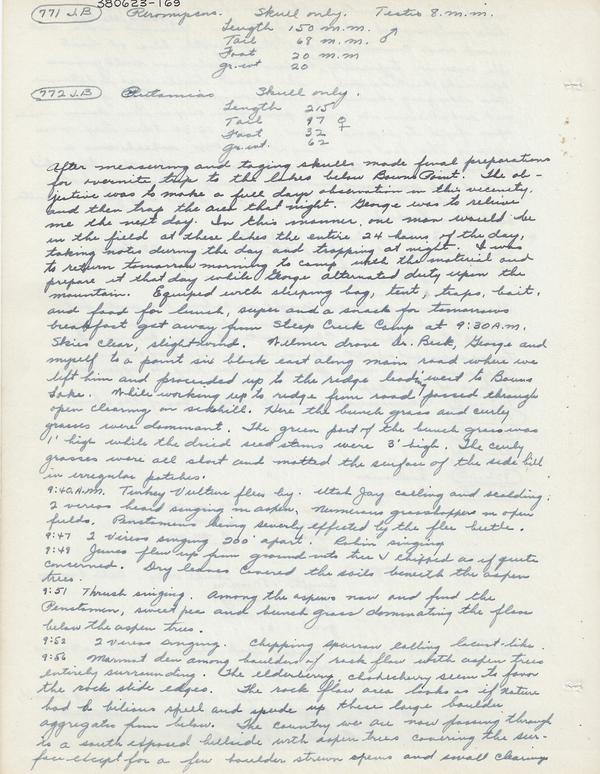 380623-169
771 J.B Peromyscus. Skull only. Testis 8. m.m.
Length 150 m.m.
Tail 68 m.m. ♂
Foot 20 m m
gr. wt 20
772 J.B Eutamias Skull only.
Length 215
Tail 97 ♀
Foot 32
gr. wt. 62
After measuring and taging skulls made final preparations
for overnite trip to the lakes below Bown Point. The ob-
jective was to make a full days observation in this vicinity,
and then trap the area that night. George was to relieve
me the next day. In this manner, one man would be
in the field at these lakes the entire 24 hours of the day,
taking notes during the day and trapping at night. I was
to return tomorrow morning to camp with the material and
prepare it that day while George alternated duty upon the
mountain. Equiped with sleeping bag, tent, traps, bait,
and food for lunch, super and a snack for tomorrows
breakfast got away from Steep Creek Camp at 9:30 A.M.
Skies clear, slight wind. Wilmer drove Dr. Beck, George and
myself to a point six block east along main road where we
left him and proceeded up to the ridge leading west to Bowns
Lake. While working up to ridge from road passed through
open clearing on sidehill. Here the bunch grass and curly
grasses were dominant. The green part of the bunch grass was
1' high while the dried seed stems were 3' high. The curly
grasses were all short and matted the surface of the side hill
in irregular patches.
9:40 A.M. Turkey Vulture flew by. Utah Jay calling and scolding;
2 vireos heard singing in aspen, numerous grasshoppers in open
fields. Penstemons being severly effected by the flee beetle.
9:47 2 Vireos singing 200' apart. Robin singing
9:49 Junco flew up from ground into tree & chipped as if quite
concerned. Dry leaves covered the soils beneath the aspen
trees.
9:51 Thrush singing. Among the aspens now and find the
Penstemon, sweet pea and bunch grass dominating the floor
below the aspen trees.
9:52 2 Vireos singing. Chipping sparrow calling locust-like.
9:56 Marmot den among boulders of rock flow with aspen trees
entirely surrounding. The elderberry, seem to favor
the rock slide edges. The rock flow area looks as if Nature
had a belious spell and spued up these large boulder
aggregates from below. The country we are now passing through
is a south exposed hillside with aspen trees covering the sur-
face except for a few boulder strewn and small clearings